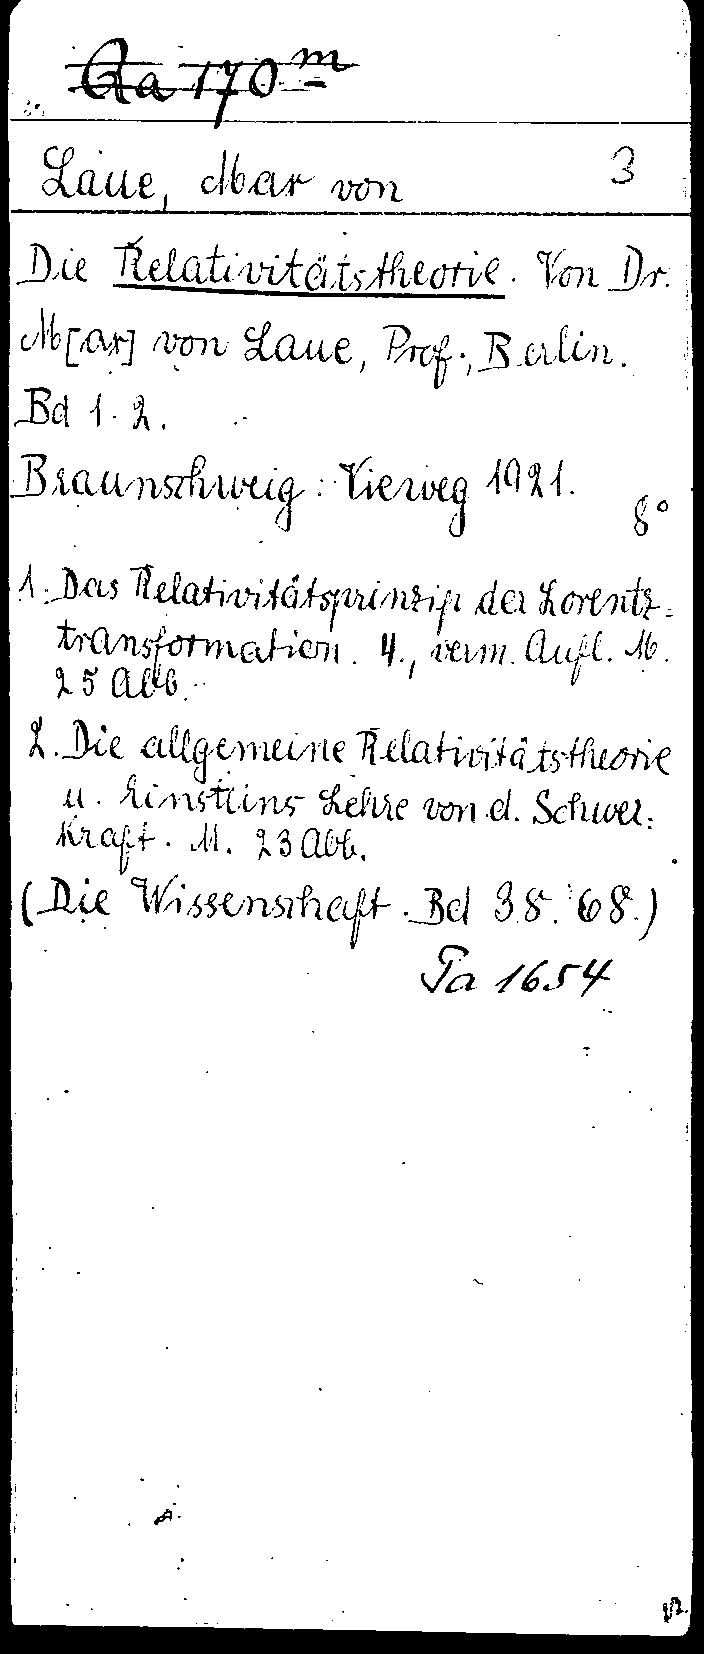 Qa 170 m
Laue, Max von 3
Die Relativitätstheorie. Von Dr.
M[ax] von Laue, Prof., Berlin.
Bd 1. 2.
Braunschweig: Vieweg 1921.
8°
1. Das Relativitätsprinzip der Lorentz=
transformation. 4., verm. Aufl. M.
25 Abb.
2. Die allgemeine Relativitätstheorie
u. Einsteins Lehre von d. Schwer=
kraft. M. 23 Abb.
(Die Wissenschaft. Bd 38. 68.)
Pa 1654